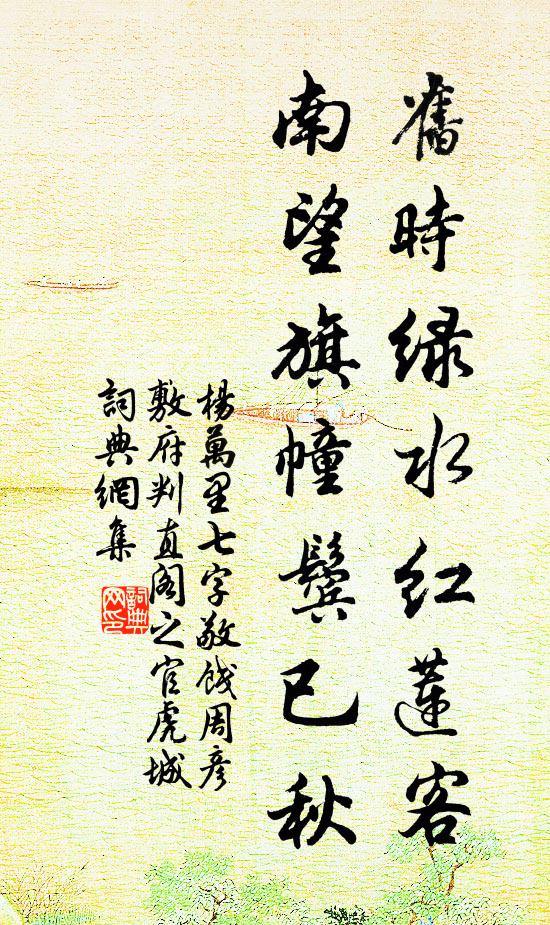 舊時緑水紅蓮客
南望旗幢鬢已秋
楊萬里七字敬餞周彦
敷府判直閣之官虎城
詞典網集
詞典网印